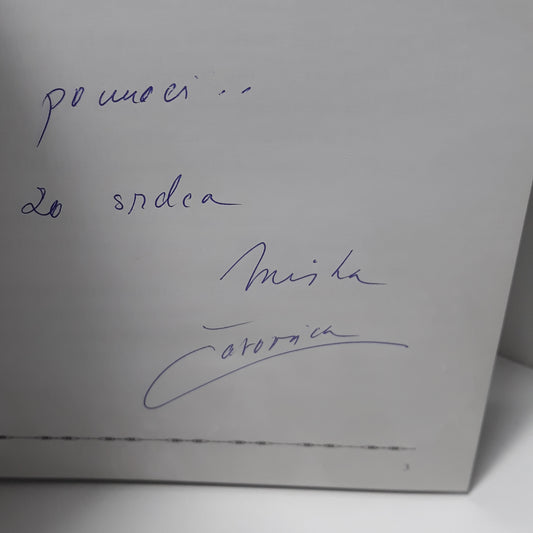 pomoci..
zo srdca
Miška
Čarovnica
3